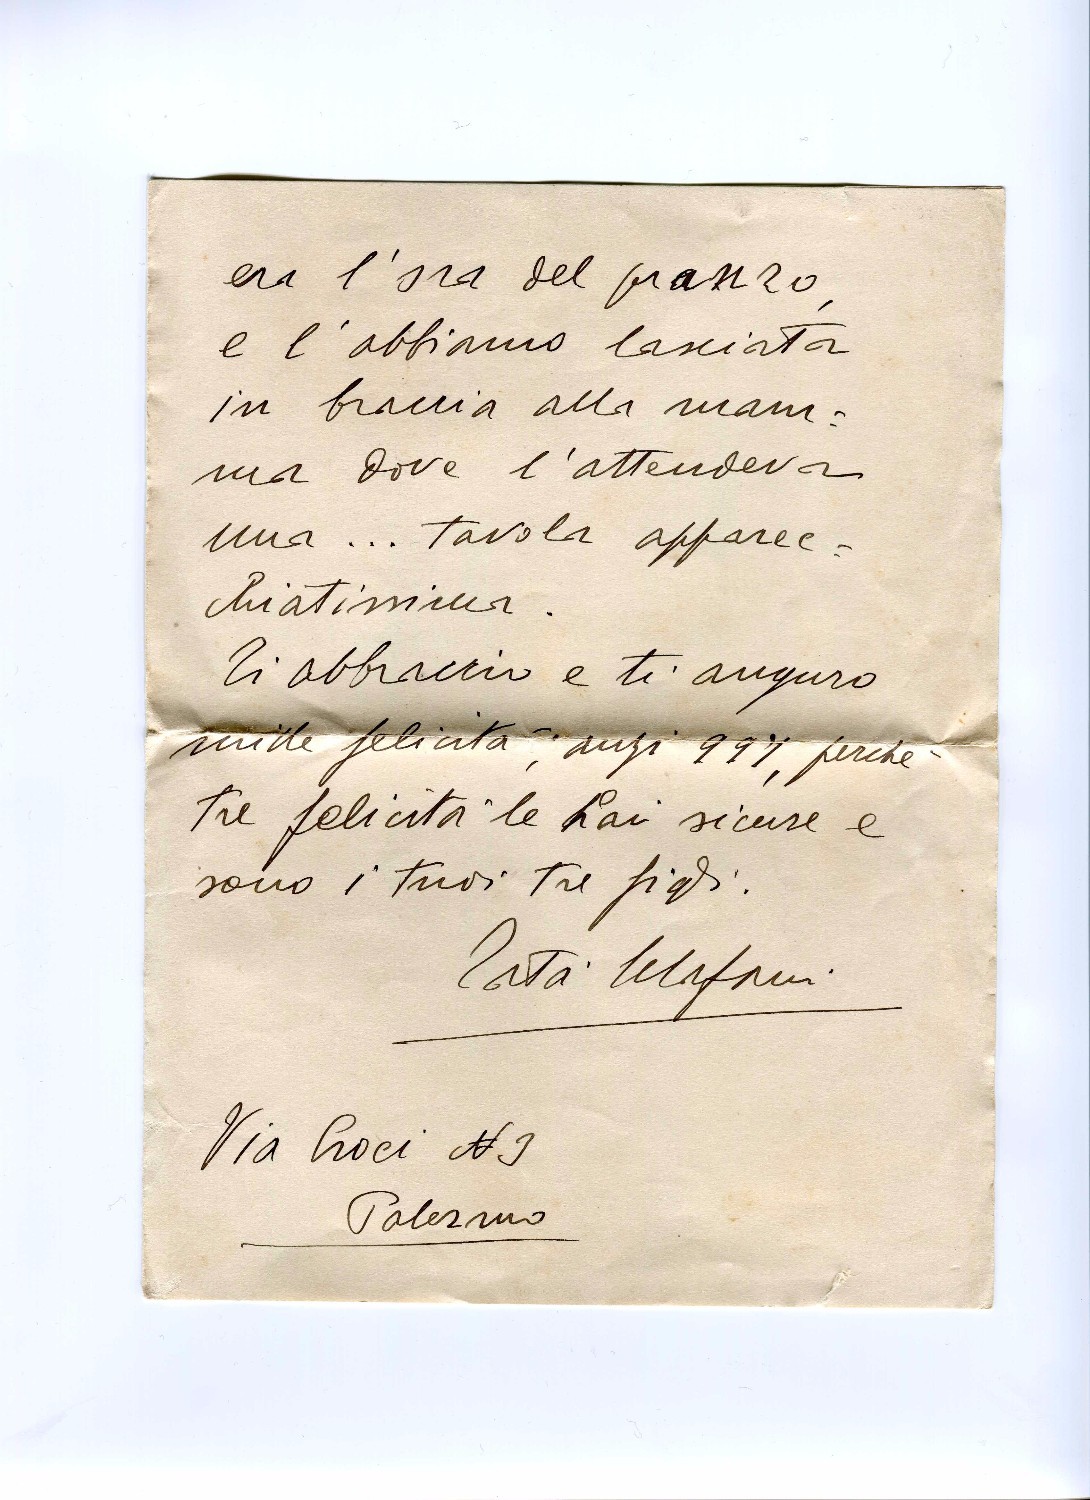 era l'ora del pranzo,
e l'abbiamo lasciata
in braccia alla mam=
ma dove l'attendeva
una ... tavola apparec=
chiatissima.
Ti abbraccio e ti auguro
mille felicità; anzi 997, perchè
tre felicità le hai sicure e
sono i tuoi tre figli.
Tatà
Via Croci N 3
Palermo